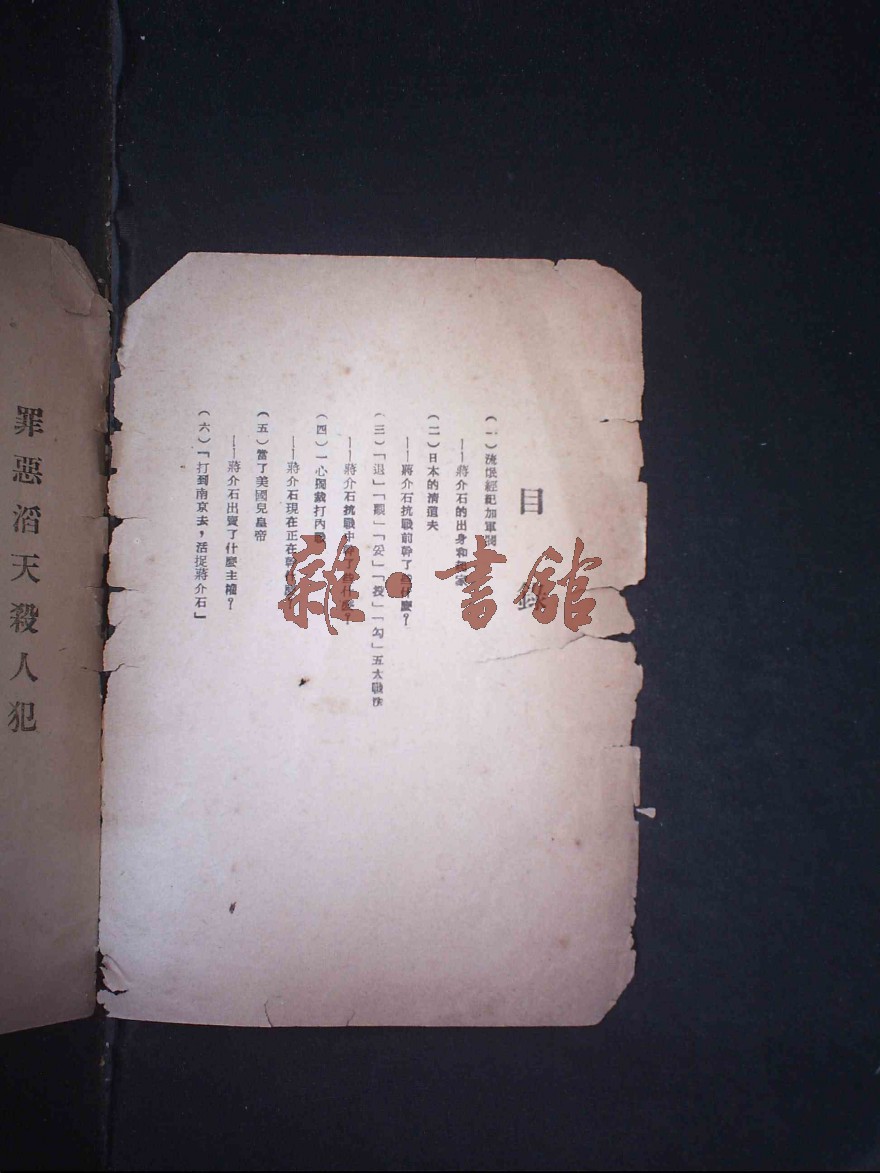 目錄
(一)流氓經紀加軍閥
——蔣介石的出身和起家
(二)日本的清道夫
——蔣介石抗戰前幹了些什麼?
(三)「退」「觀」「妥」「投」「勾」五大戰法
——蔣介石抗戰中幹了些什麼?
(四)一心獨裁打內戰
——蔣介石現在正在幹什麼?
(五)當了美國兒皇帝
——蔣介石出賣了什麼主權?
(六)「打到南京去,活捉蔣介石」
罪惡滔天殺人犯
雜·書館